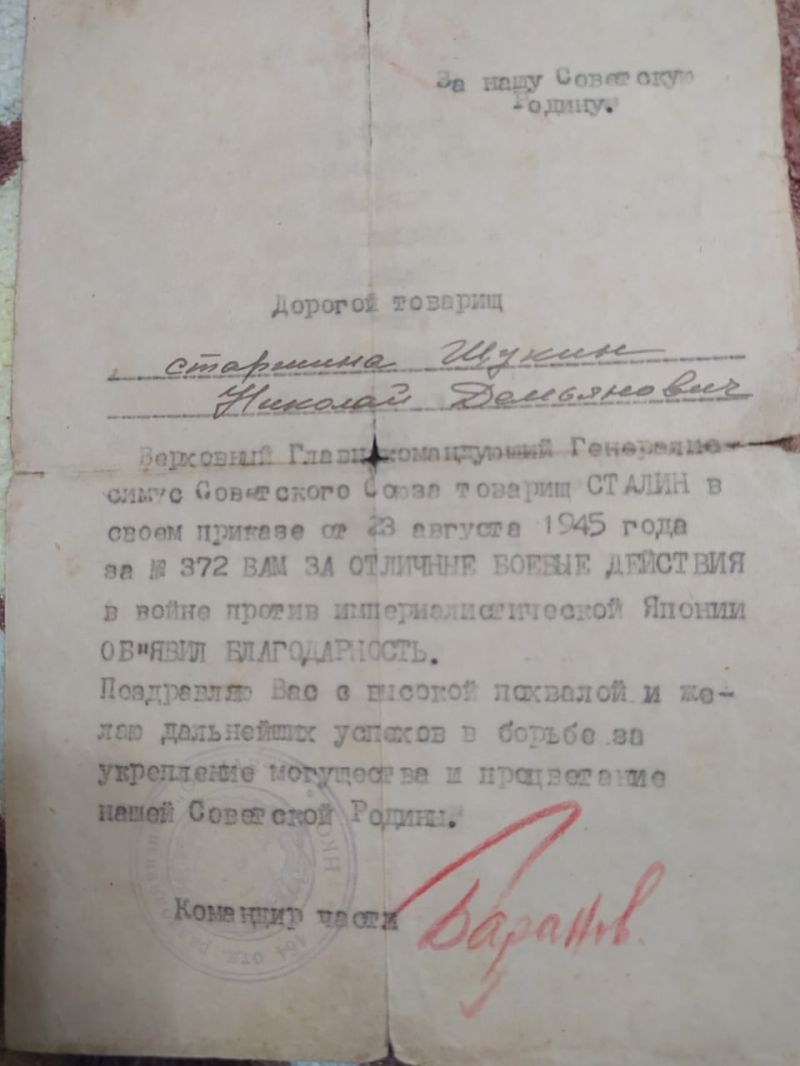 За нашу Советскую
Родину.
Дорогой товарищ
старшина Щукин
Николай Демьянович
Верховный Главнокомандующий Генералис-
симус Советского Союза товарищ СТАЛИН в
своем приказе от 23 августа 1945 года
за № 372 ВАМ ЗА ОТЛИЧНЫЕ БОЕВЫЕ ДЕЙСТВИЯ
в войне против империалистической Японии
ОБ"ЯВИЛ БЛАГОДАРНОСТЬ.
Поздравляю Вас с высокой похвалой и же-
лаю дальнейших успехов в борьбе за
укрепление могущества и процветание
нашей Советской Родины.
Командир части Баранов.
НКО
464 отд.